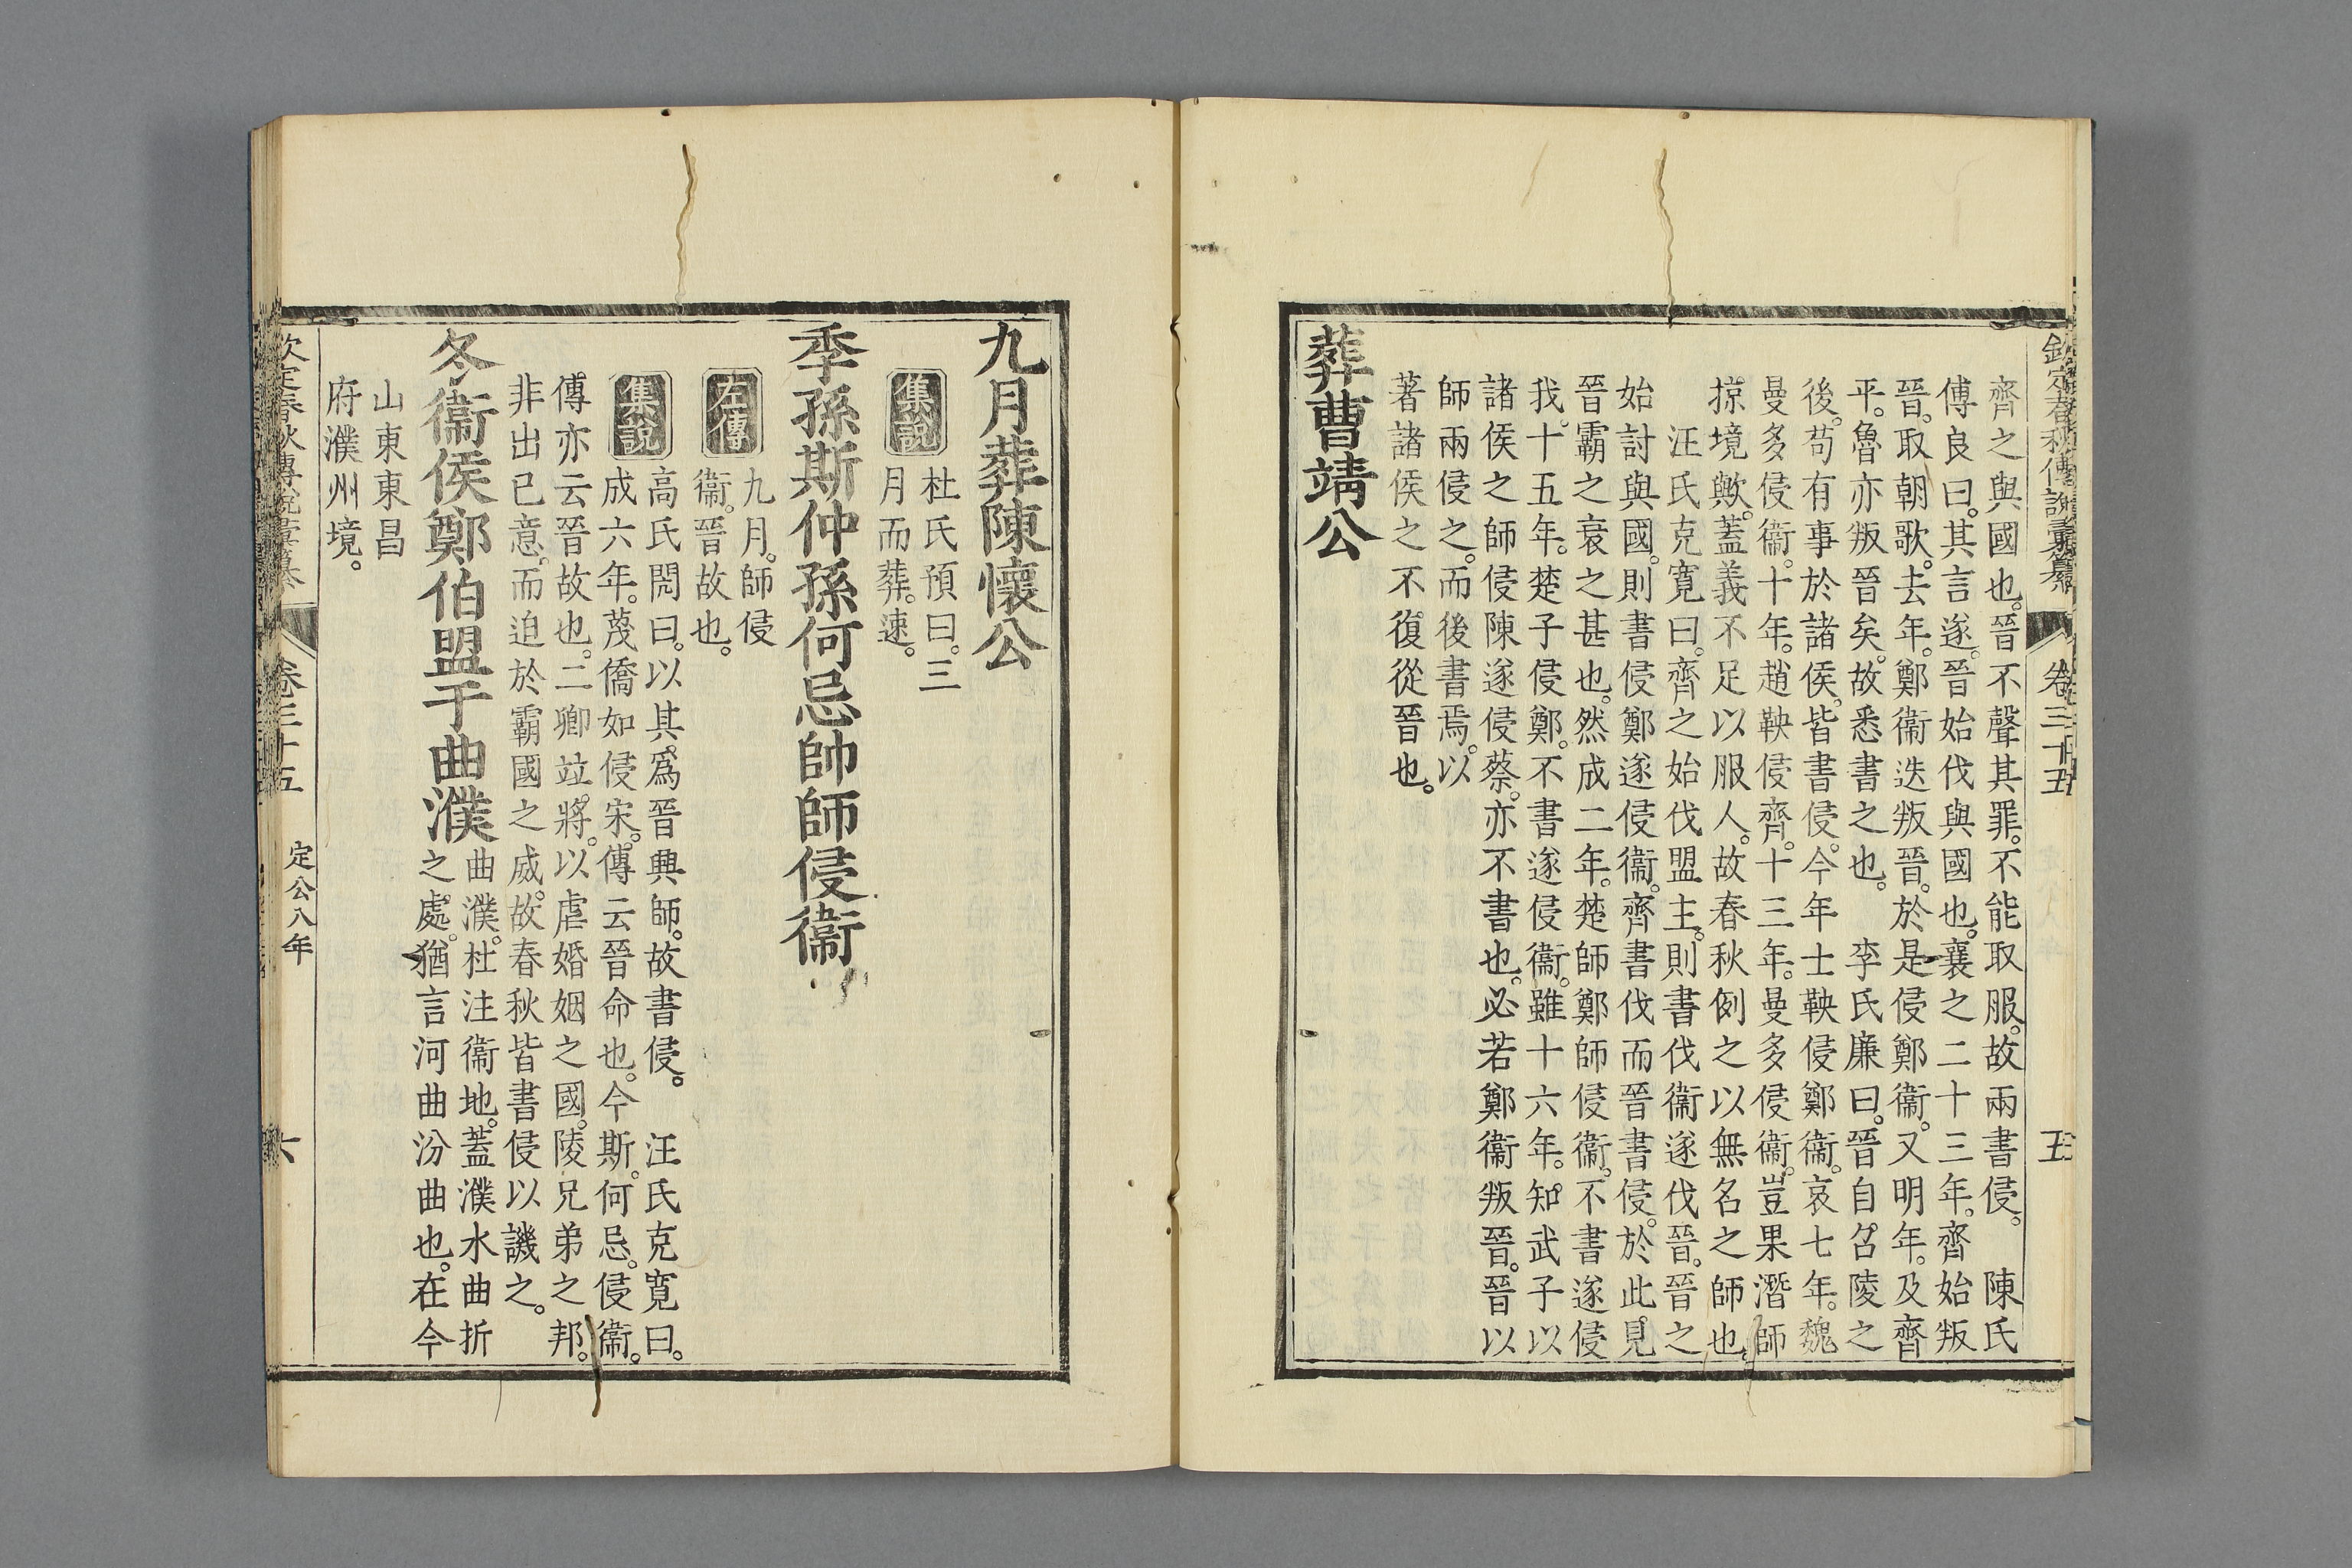 齊之與國也。晉不聲其罪。不能取服。故兩書侵。　陳氏
傅良曰。其言遂。晉始伐與國也。襄之二十三年。齊始叛
晉。取朝歌。去年。鄭衞迭叛晉。於是侵鄭衞。又明年。及齊
平。魯亦叛晉矣。故悉書之也。　李氏廉曰。晉自召陵之
後。苟有事於諸侯。皆書侵。今年士鞅侵鄭衞。哀七年。魏
曼多侵衞。十年。趙鞅侵齊。十三年。曼多侵衞。豈果潛師
掠境歟。蓋義不足以服人。故春秋例之以無名之師也。
汪氏克寬曰。齊之始伐盟主。則書伐衞遂伐晉。晉之
始討與國。則書侵鄭遂侵衞。齊書伐而晉書侵。於此見
晉霸之衰之甚也。然成二年。楚師鄭師侵衞。不書遂侵
我。十五年。楚子侵鄭。不書遂侵衞。雖十六年。知武子以
諸侯之師侵陳遂侵蔡。亦不書也。必若鄭衞叛晉。晉以
師兩侵之。而後書焉。以
著諸侯之不復從晉也。
葬曹靖公
欽定春秋傳說彙纂 卷三十五 五
九月葬陳懷公
集說 杜氏預曰。三
月而葬。速。
季孫斯仲孫何忌帥師侵衞
左傳 九月。師侵
衞。晉故也。
集說 高氏閌曰。以其爲晉興師。故書侵。　汪氏克寬曰。
成六年。蔑僑如侵宋。傳云晉命也。今斯。何忌。侵衞。
傳亦云晉故也。二卿竝將。以虐婚姻之國。陵兄弟之邦。
非出己意。而迫於霸國之威。故春秋皆書侵以譏之。
冬衞侯鄭伯盟于曲濮 曲濮。杜注衞地。蓋濮水曲折
之處。猶言河曲汾曲也。在今
山東東昌
府濮州境。
欽定春秋傳說彙纂 卷三十五 定公八年 六